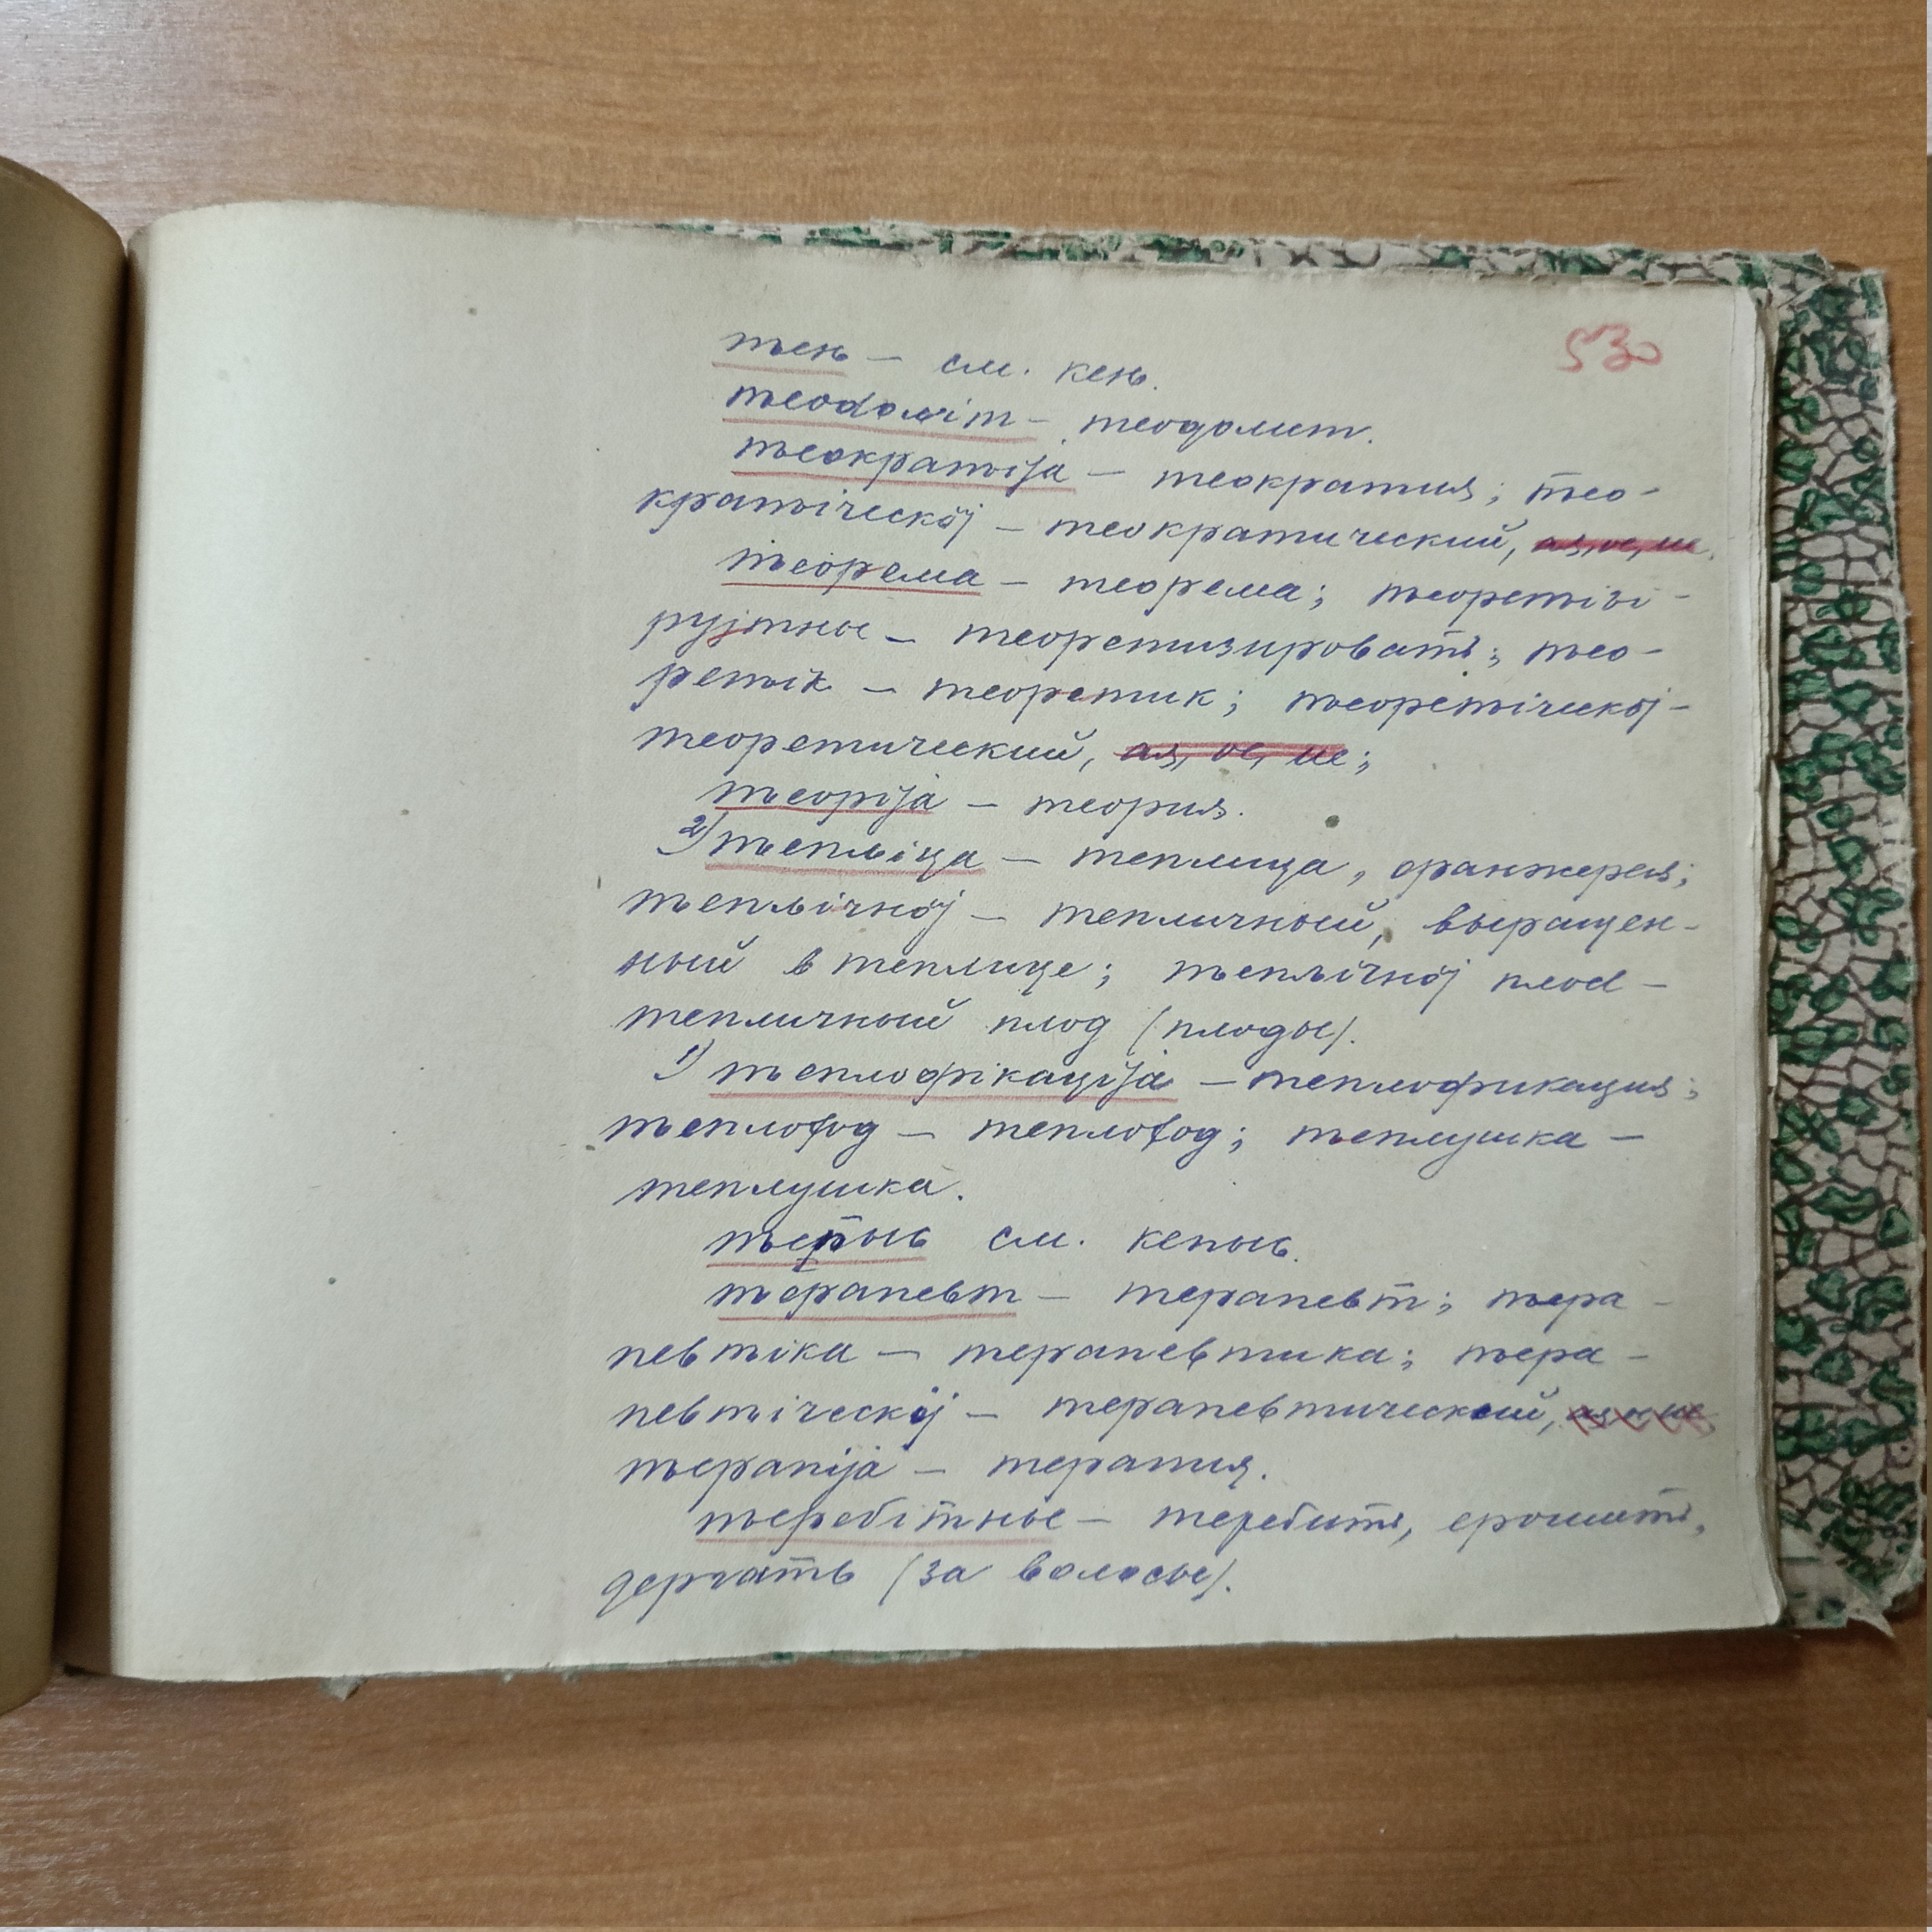 530
тень – см. кень.
теодоліт – теодолит.
тьеократьіја – теократия; тео-
кратьіческӧј – теократический, ая, ое, ие.
тьеорема – теорема; тьеоретьізі-
рујтные – теоретизировать; тьео-
ретьік – теоретик; тьеоретьіческӧј –
теоретический, ая, ое, ие;
тьеоріја – теория.
2) тьепльіца – теплица, оранжерея;
тьепльічнӧј – тепличный, выращен-
ный в теплице; тьепльічнӧј плоd –
тепличный плод (плоды).
1) тьеплофікаціја – теплофикация;
тьеплоход – теплоход; тьеплушка –
теплушка.
тьепыль см. кепыль.
тьерапевт – терапевт; тьера-
певтьіка – терапевтика; тьера-
певтьіческӧј – терапевтический,
тьерапіја – терапия.
тьеребітные – теребить, ерошить,
дергать (за волосы).